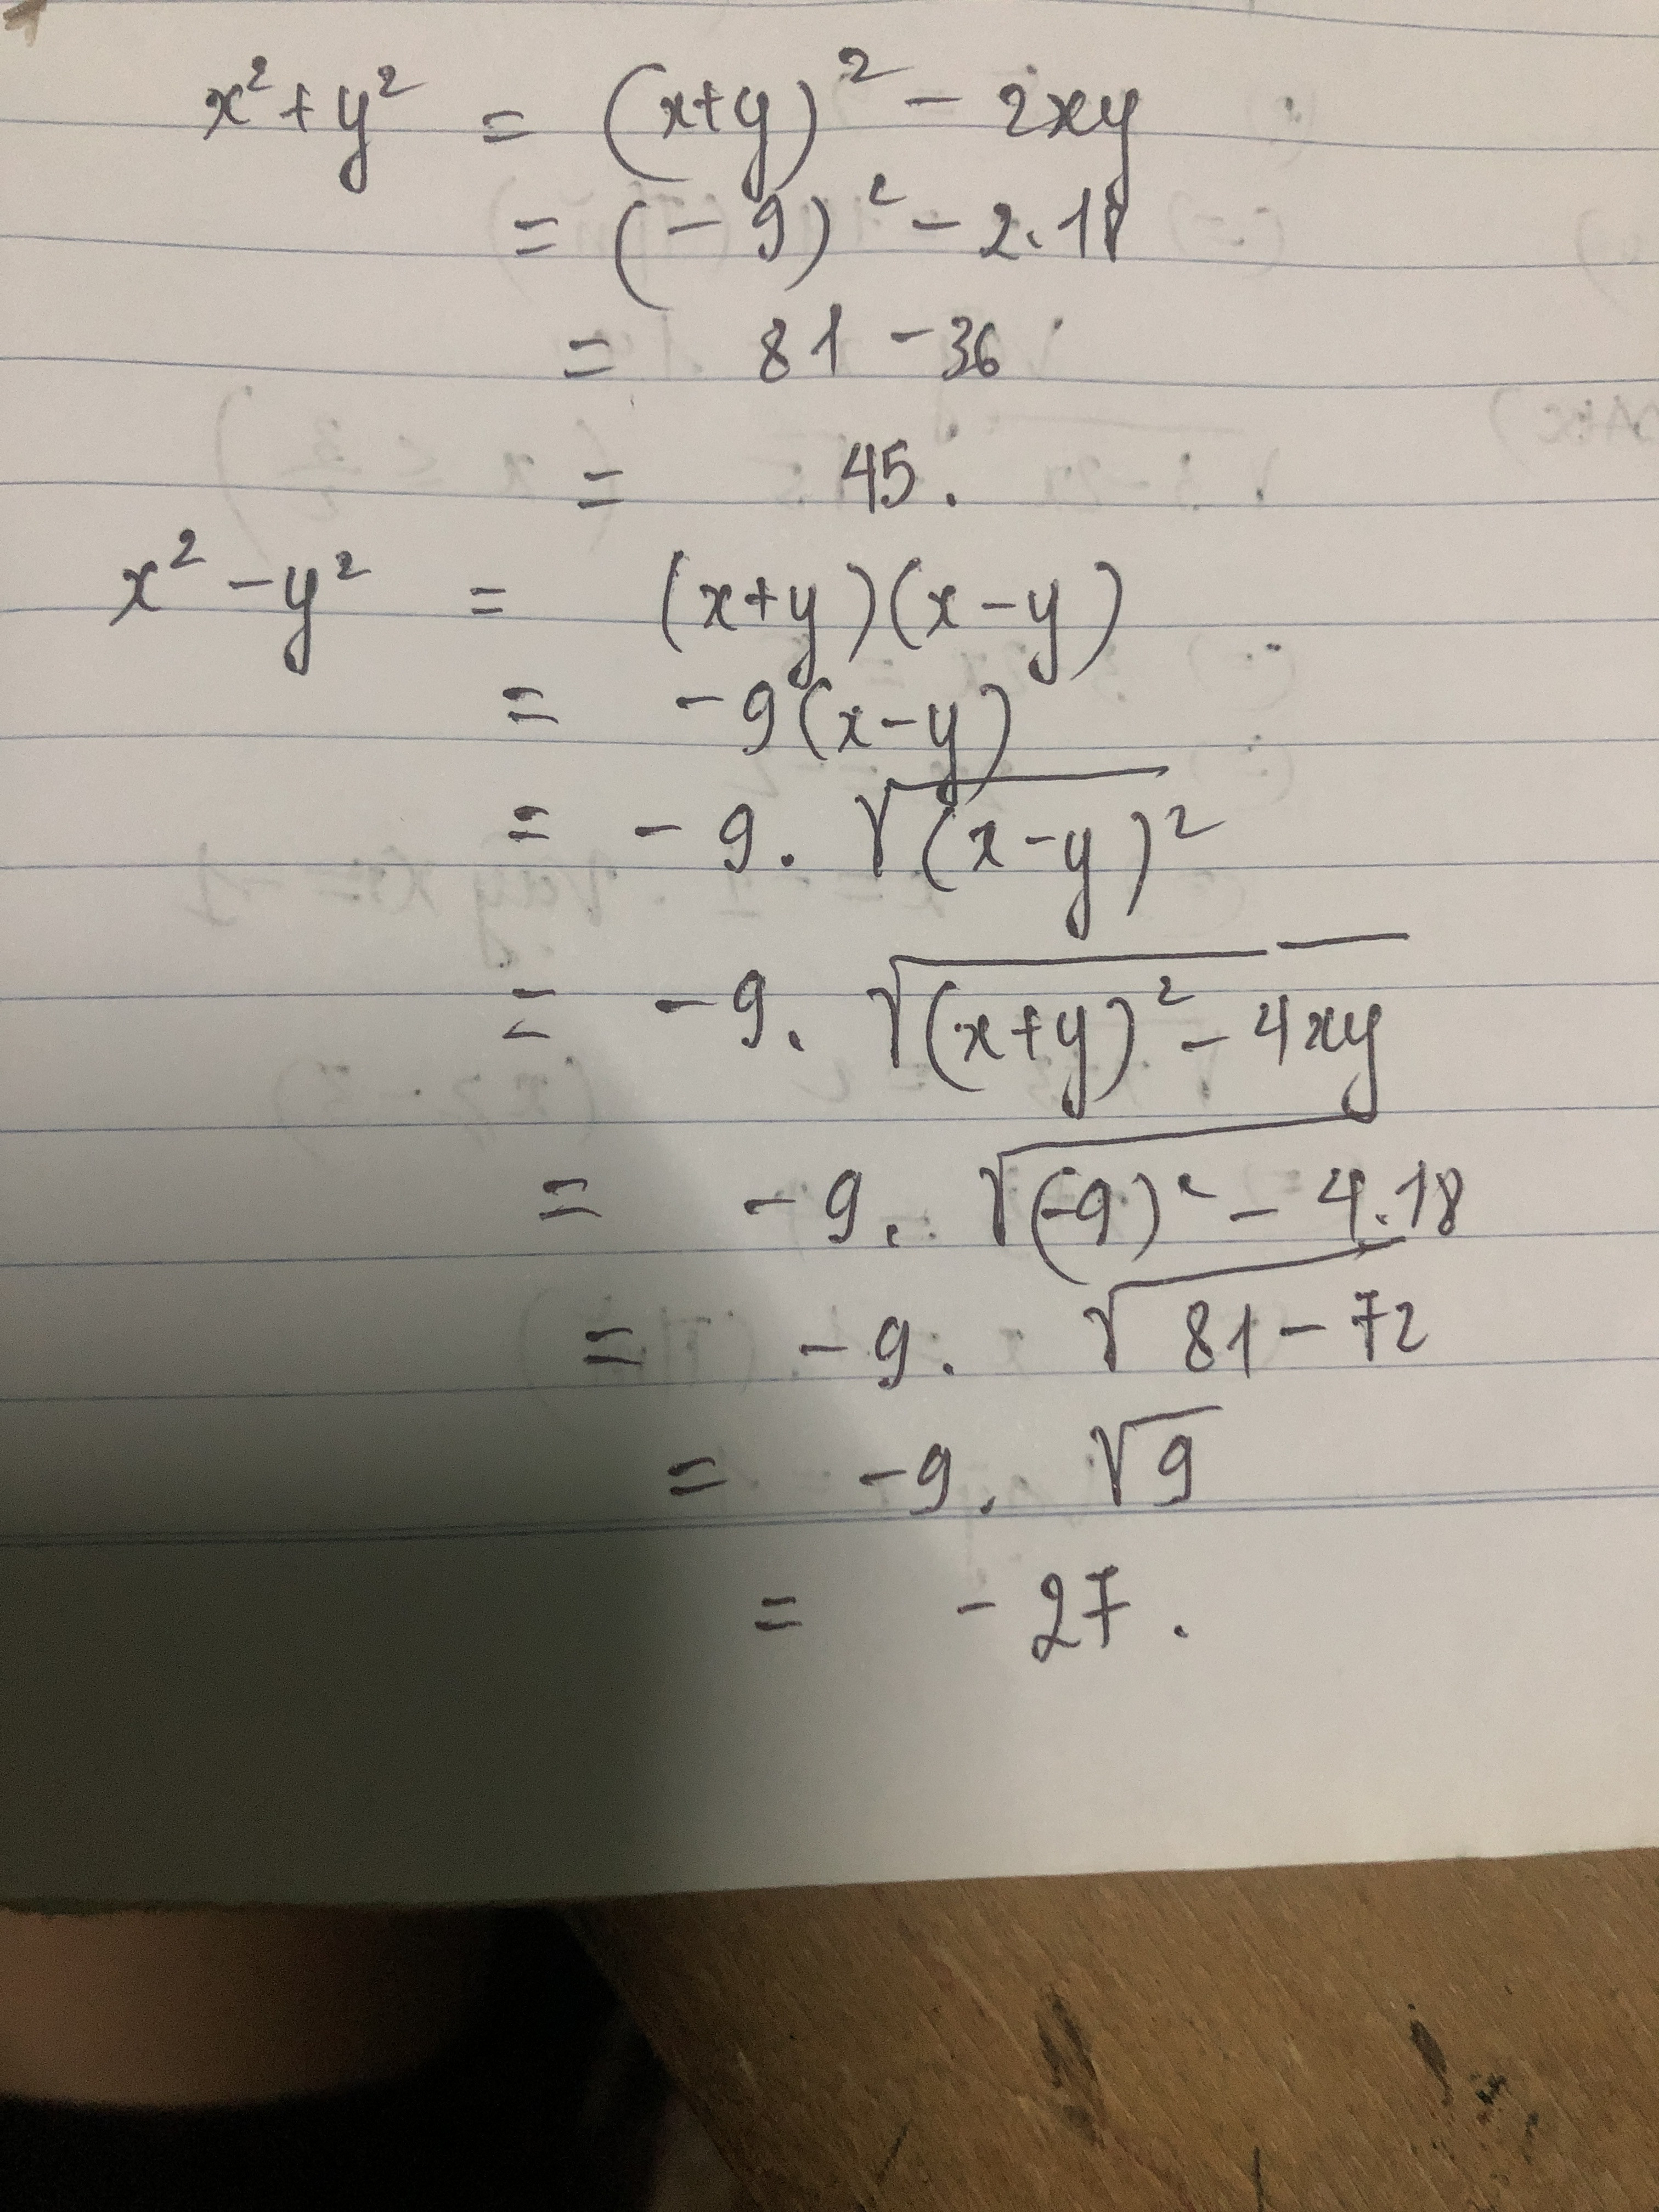 x² + y² = (x+y)² - 2xy
= (-9)² - 2.18
= 81 - 36
= 45.
x² - y² = (x+y)(x-y)
= -9(x-y)
= -9. √(x-y)²
= -9. √(x+y)² - 4xy
= -9. √(-9)² - 4.18
= -9. √81 - 72
= -9. √9
= -27.